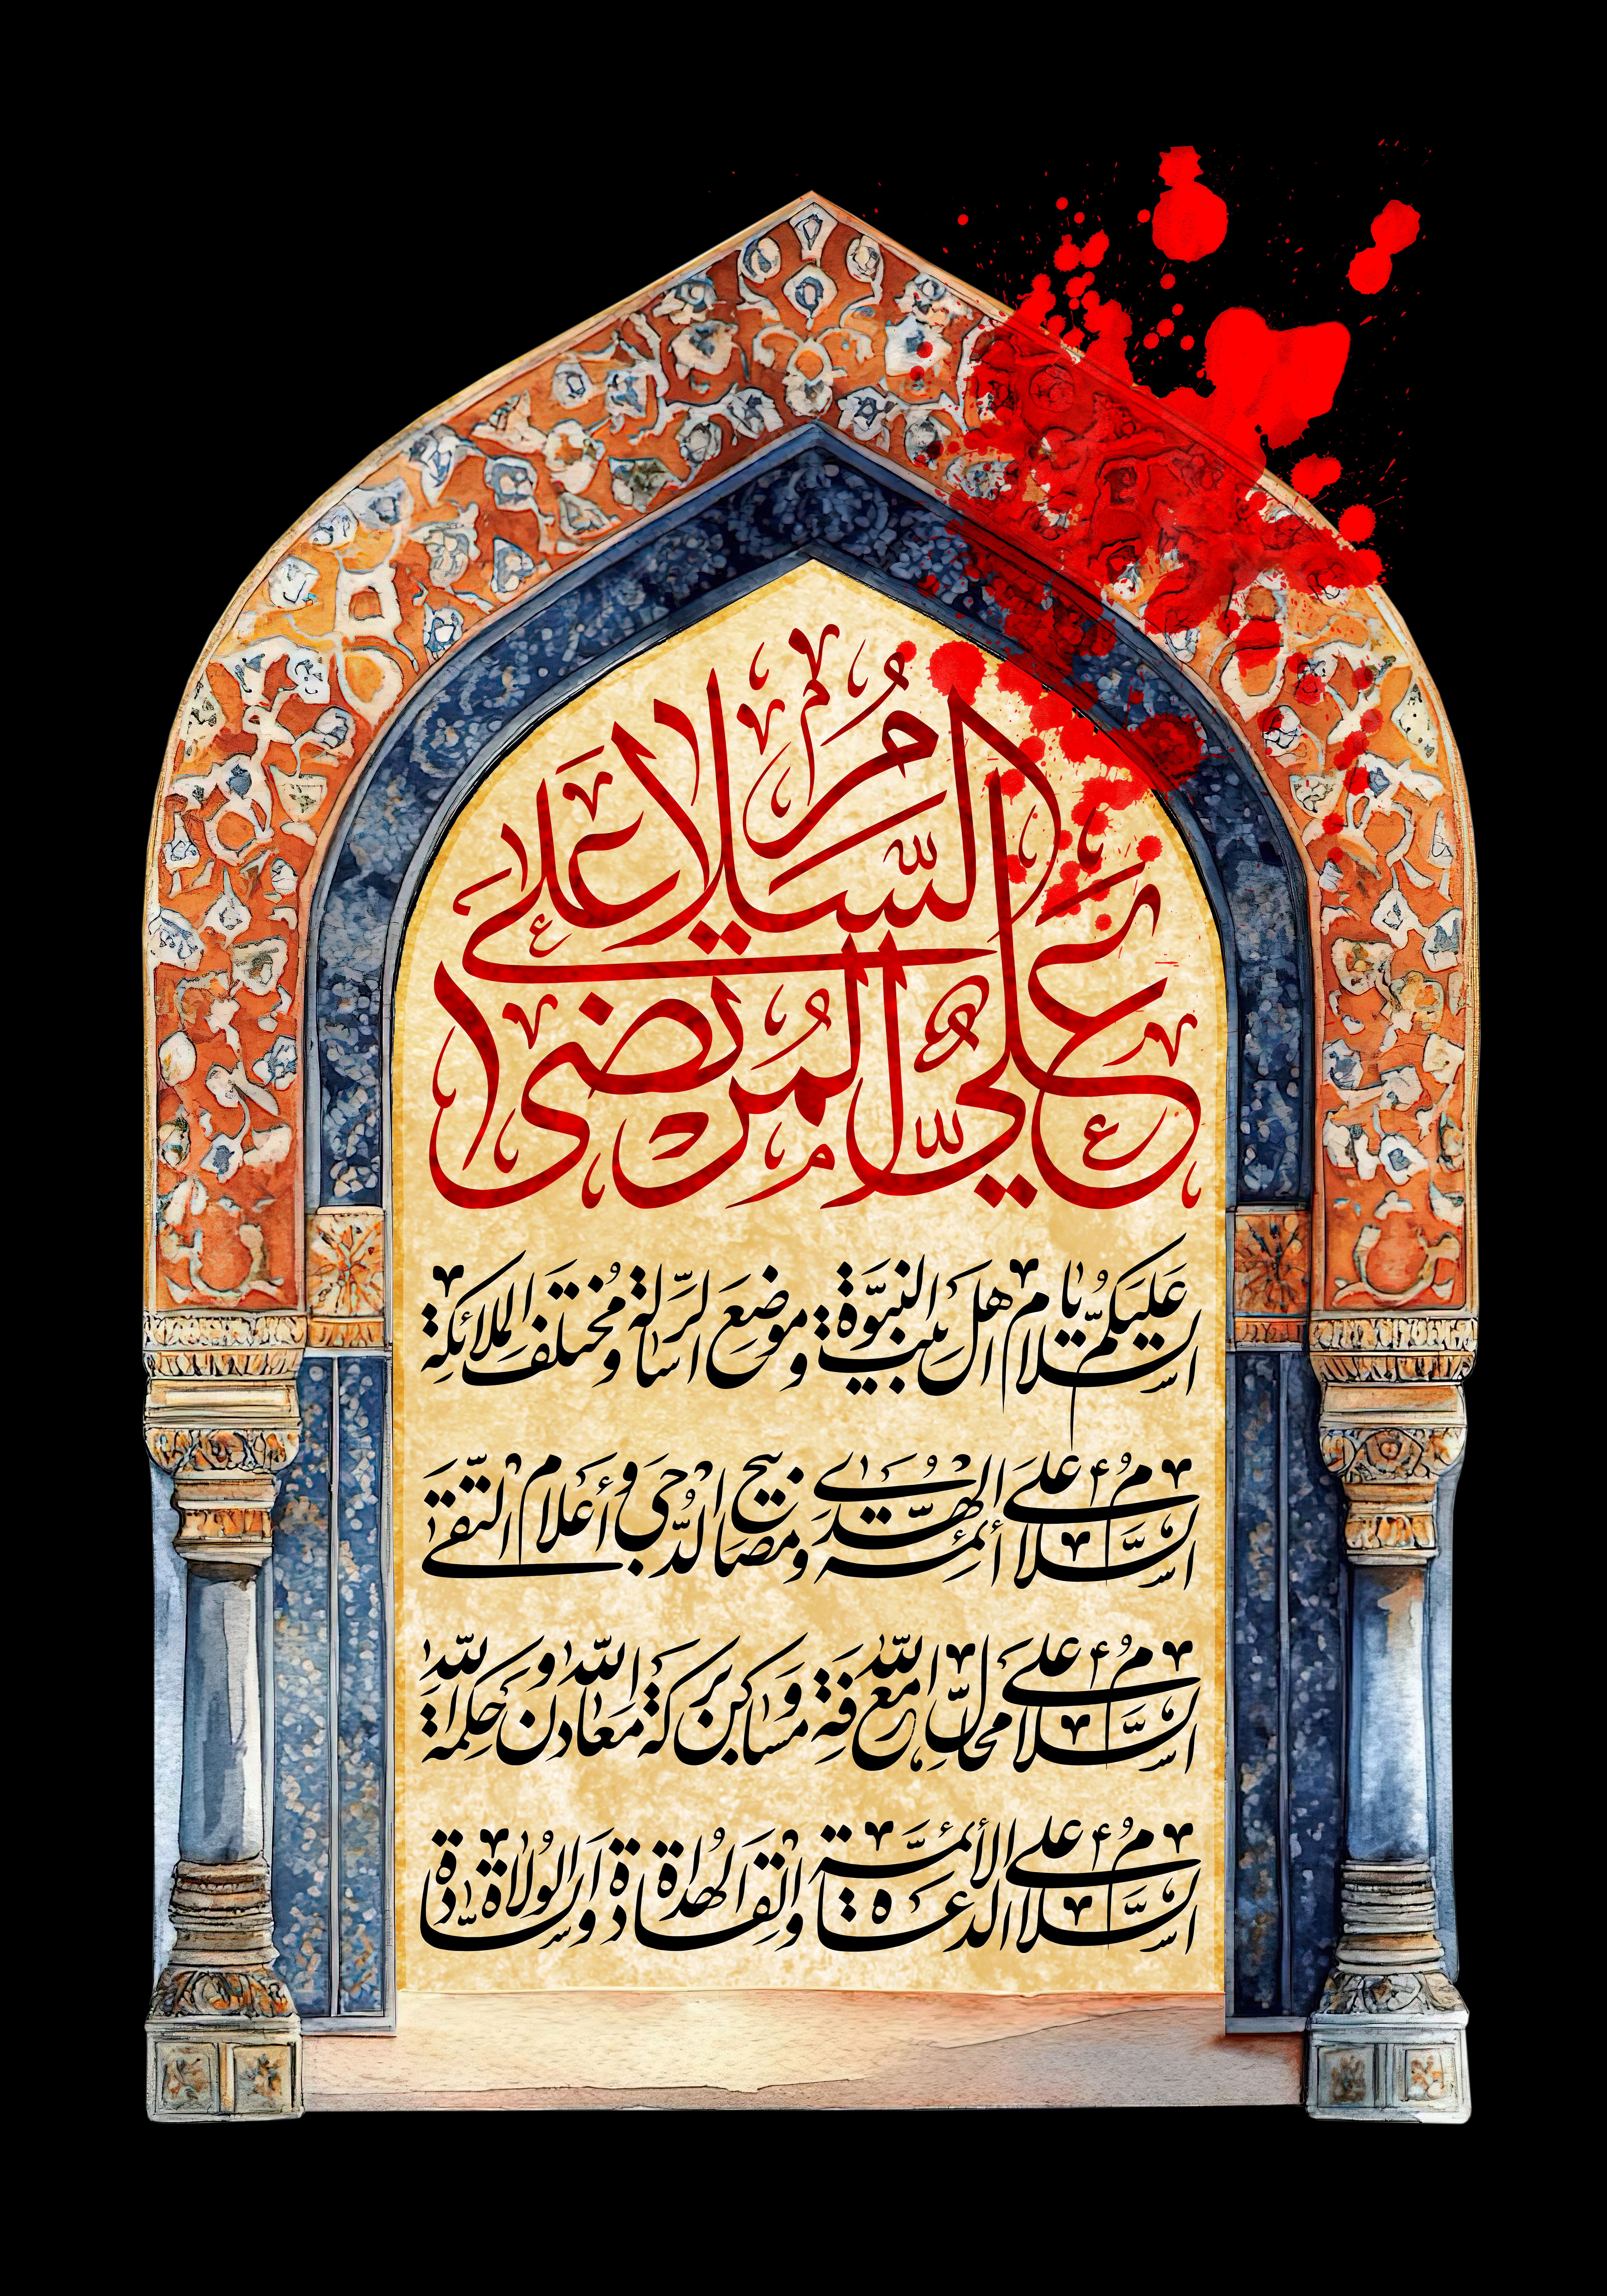 السَّلامُ عَلی
عَلِيٍّ الْمُرْتَضی
السلام عَلَيكُم يا اهل بيت النبوّة و موضع الرّسالة و مُختلف الملائكة
السَّلامُ علی أئمة الهُدی و مصابيح الدُّجی و أعلام التّقی
السَّلامُ علی محالّ معرفة الله و مساكن بركة الله و معادن حكمة الله
السَّلامُ علی الأئمّة الدعاة و القادة الهُداة و السّادة الوُلاة